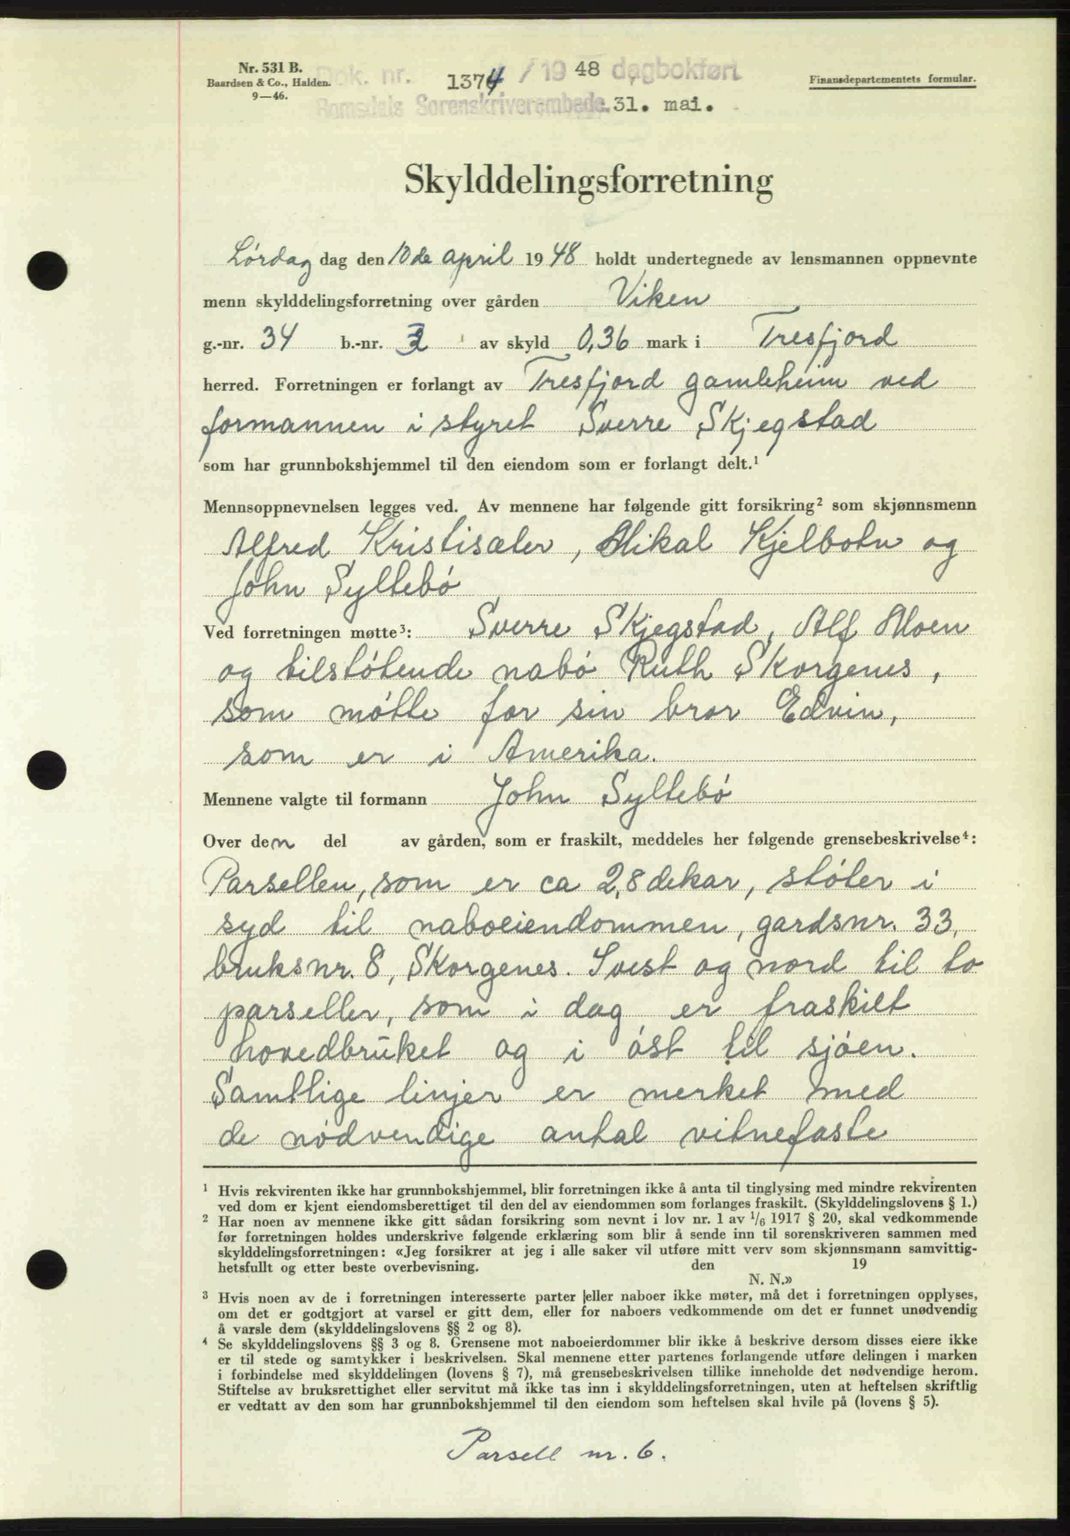 Nr. 531 B.
Baardsen & Co., Halden.
9—46.
Dok. nr. 1374 / 19 48 dagbokført
Romsdals Sorenskriverembede. 31. mai.
Finansdepartementets formular.
Skylddelingsforretning
Lørdag dag den 10de april 1948 holdt undertegnede av lensmannen oppnevnte
menn skylddelingsforretning over gården Viken
g.-nr. 34 b.-nr. 2 av skyld 0,36 mark i Tresfjord
herred. Forretningen er forlangt av Tresfjord gamleheim ved
formannen i styret Sverre Skjegstad
som har grunnbokshjemmel til den eiendom som er forlangt delt.¹
Mennsoppnevnelsen legges ved. Av mennene har følgende gitt forsikring² som skjønnsmenn
Alfred Kristisæter, Mikal Kjelbotn og
John Syltebø
Ved forretningen møtte³: Sverre Skjegstad, Alf Moen
og tilstøtende nabo Ruth Skorgenes,
som møtte for sin bror Edvin,
som er i Amerika.
Mennene valgte til formann John Syltebø
Over den del av gården, som er fraskilt, meddeles her følgende grensebeskrivelse⁴:
Parsellen, som er ca 2,8 dekar, støter i
syd til naboeiendommen, gardsnr. 33,
bruksnr. 8, Skorgenes. I vest og nord til to
parseller, som i dag er fraskilt
hovedbruket og i øst til sjøen.
Samtlige linjer er merket med
de nødvendige antal vitnefaste
¹ Hvis rekvirenten ikke har grunnbokshjemmel, blir forretningen ikke å anta til tinglysing med mindre rekvirenten
ved dom er kjent eiendomsberettiget til den del av eiendommen som forlanges fraskilt. (Skylddelingslovens § 1.)
² Har noen av mennene ikke gitt sådan forsikring som nevnt i lov nr. 1 av 1/6 1917 § 20, skal vedkommende
før forretningen holdes underskrive følgende erklæring som blir å sende inn til sorenskriveren sammen med
skylddelingsforretningen: «Jeg forsikrer at jeg i alle saker vil utføre mitt verv som skjønnsmann samvittig-
hetsfullt og etter beste overbevisning. den 19
N. N.»
³ Hvis noen av de i forretningen interesserte parter eller naboer ikke møter, må det i forretningen opplyses,
om det er godtgjort at varsel er gitt dem, eller for naboers vedkommende om det er funnet unødvendig
å varsle dem (skylddelingslovens §§ 2 og 8).
⁴ Se skylddelingslovens §§ 3 og 8. Grensene mot naboeierdommer blir ikke å beskrive dersom disses eiere ikke
er til stede og samtykker i beskrivelsen. Skal mennene etter partenes forlangende utføre delingen i marken
i forbindelse med skylddelingen (lovens § 7), må grensebeskrivelsen tillike inneholde det nødvendige herom.
Stiftelse av bruksrettighet eller servitut må ikke tas inn i skylddelingsforretningen, uten at heftelsen skriftlig
er vedtatt av den som har grunnbokshjemmel til den eiendom som heftelsen skal hvile på (lovens § 5).
Parsell nr. 6.